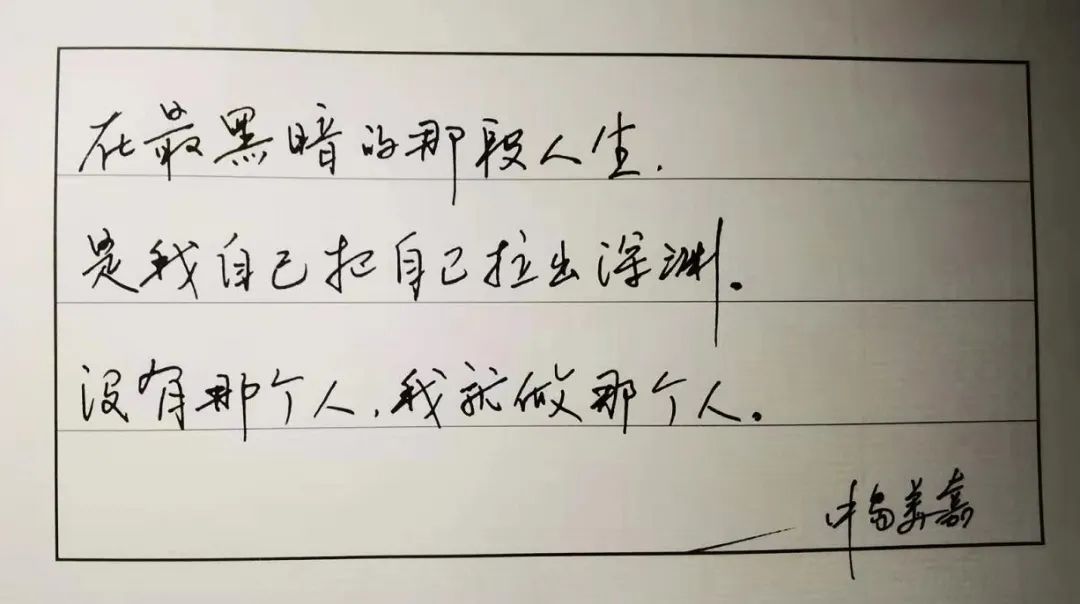 在最黑暗的那段人生.
是我自己把自己拉出深渊。
没有那个人,我就做那个人。
中岛美嘉